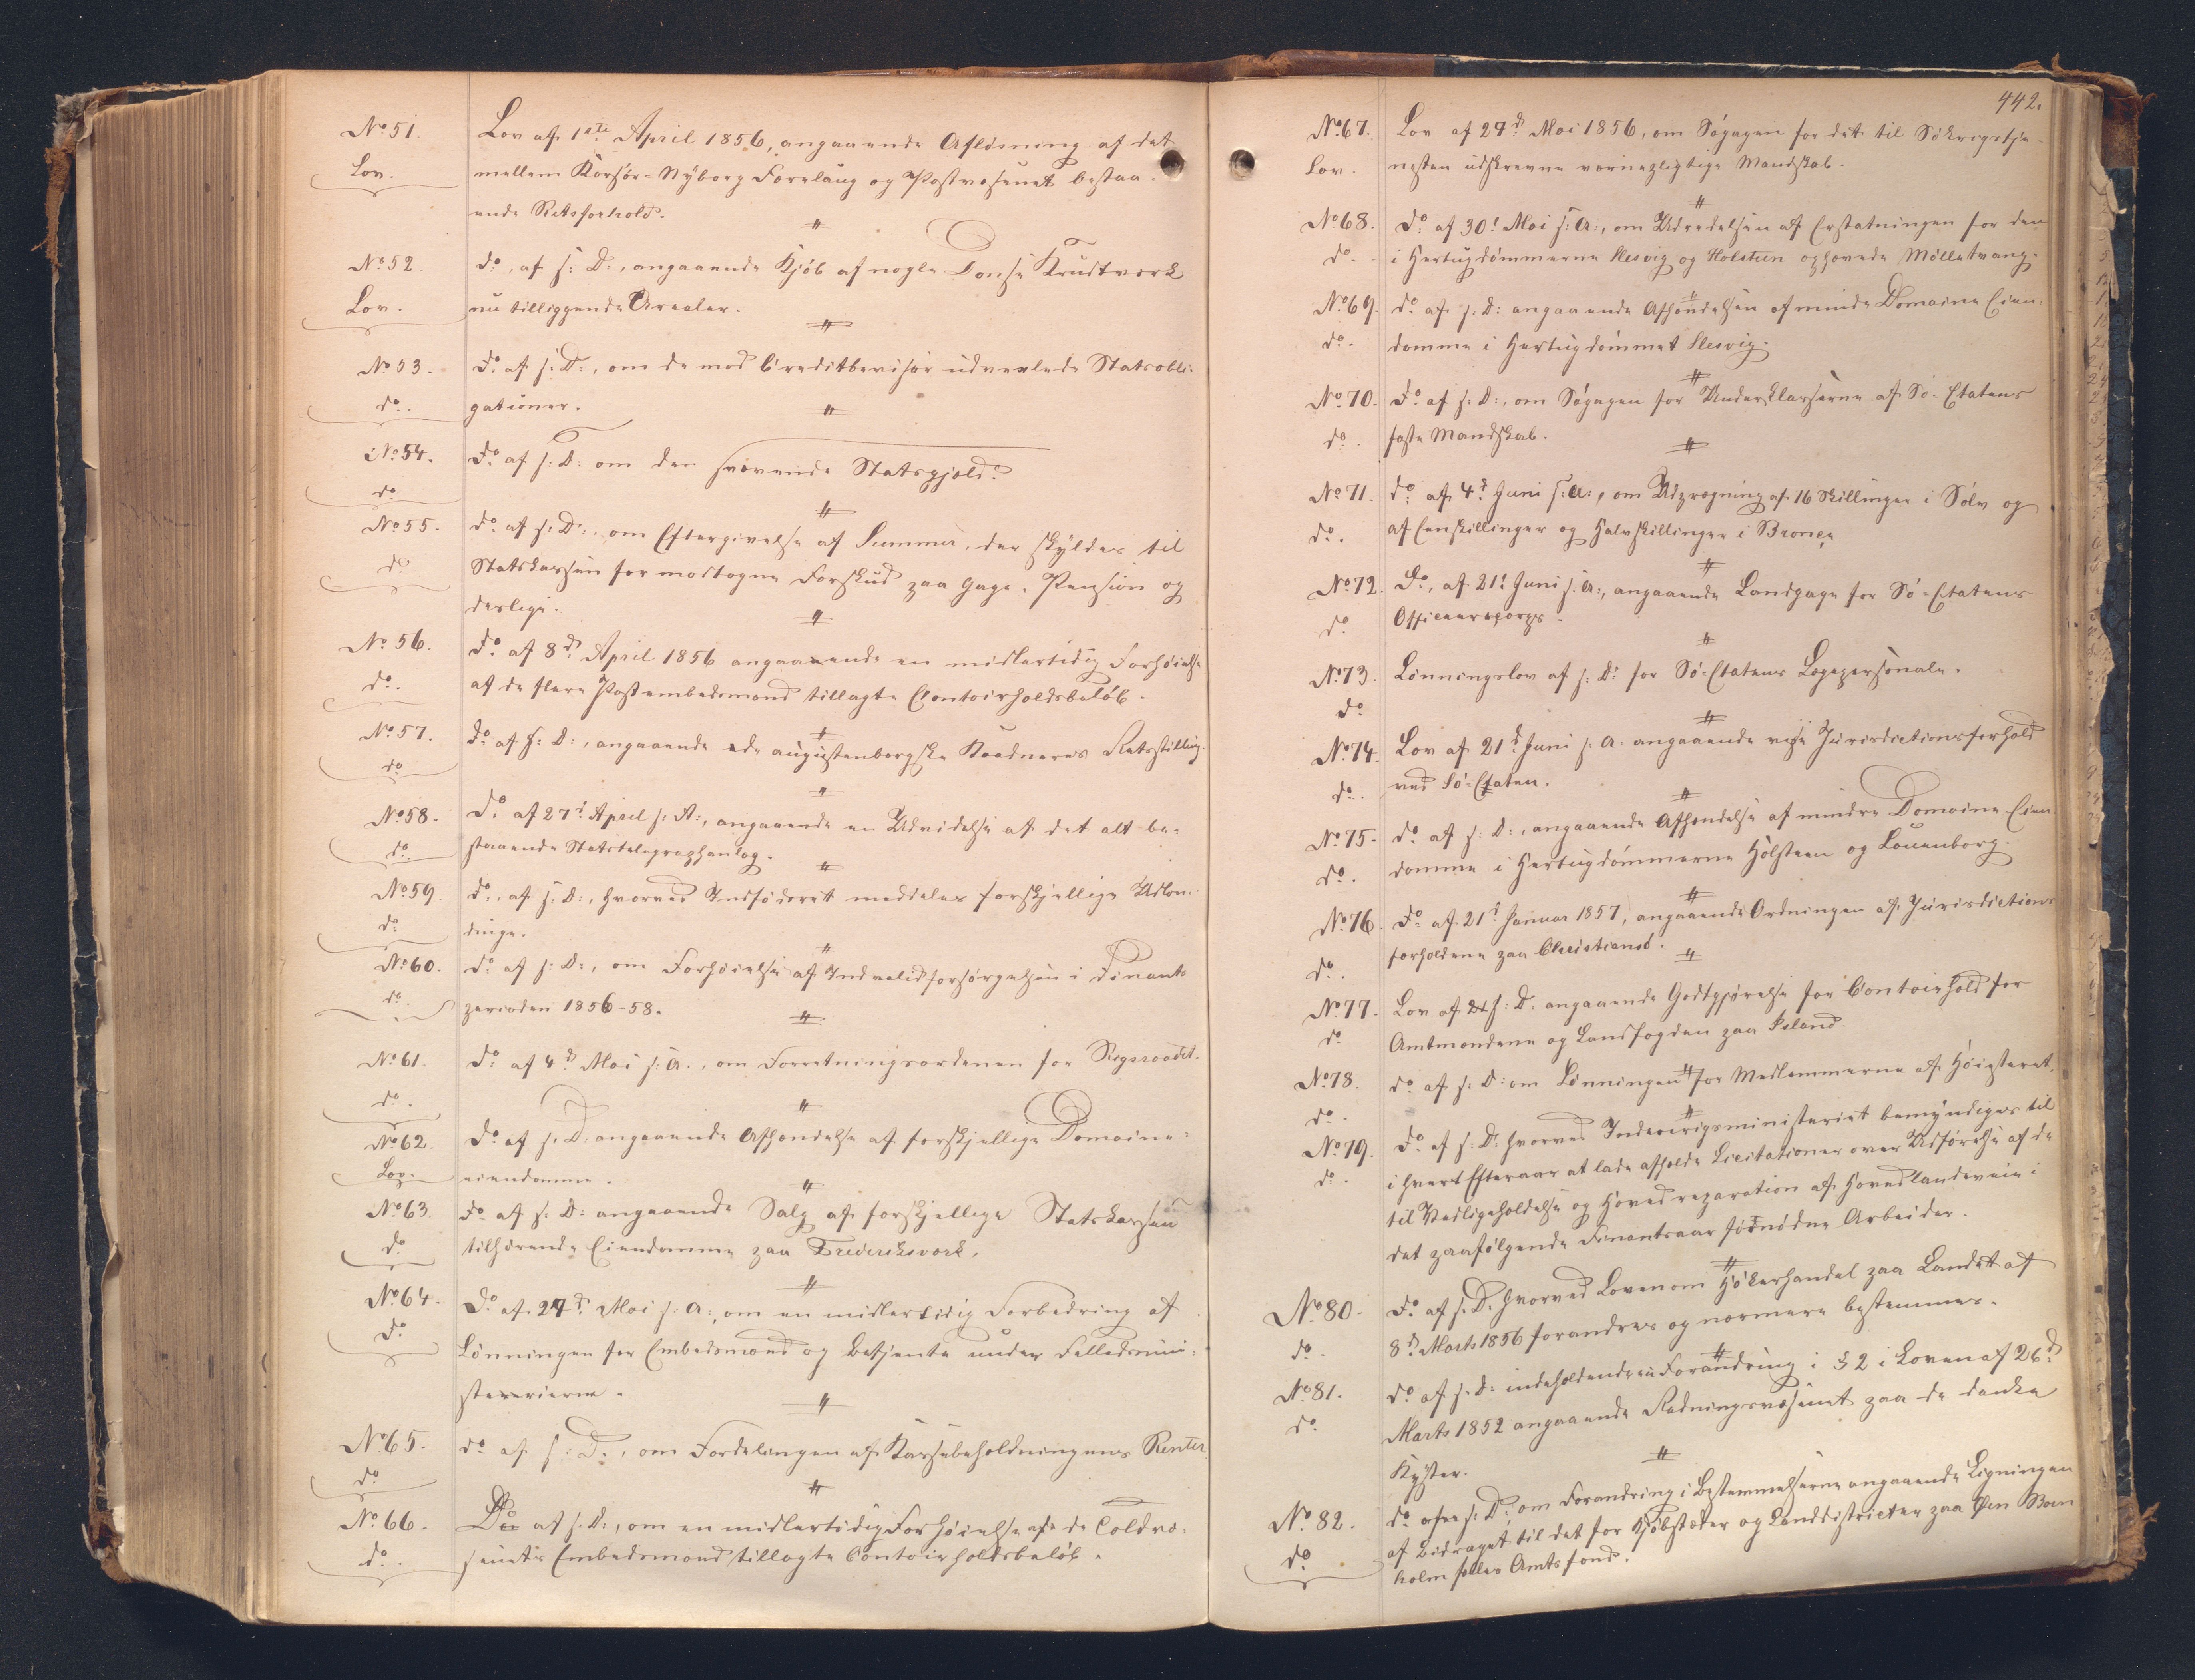 No 51.
Lov.
Lov af 1ste April 1856, angaaende Afløsning af det
mellem Korsør-Nyborg Færelaug og Postvæsenet bestaa-
ende Retsforhold.
No 52.
Lov.
do, af s: D:, angaaende Kjøb af nogle Donse Krudtværk
nu tilliggende Arealer.
No 53.
do.
do af s: D:, om de mod Creditbeviser udvexlede Statsobli-
gationer.
No 54.
do
do af s: D: om den svævende Statsgjæld.
No 55.
do
do af s: D:, om Eftergivelse af Summer, der skyldes til
Statskassen for modtagne Forskud paa Gage, Pension og
deslign.
No 56.
do.
do af 8d April 1856 angaaende en midlertidig Forhøielse
af de flere Postembedsmænd tillagte Contoirholdsbeløb.
No 57.
do
do af s: D:, angaaende de augustenborgske Kaadneres Retsstilling.
No 58.
do.
do af 27d April s: A:, angaaende en Udvidelse af det alt be-
staaende Statstelegraphanlæg.
No 59
do
do, af s: D:, hvorved Indfødsret meddeles forskjellige Udlæn-
dinge.
No 60.
do.
do af s: D:, om Forhøielse af Indvalidforsørgelsen i Finants
perioden 1856-58.
No 61.
do.
do af 4d Mai s: A., om Forretningsordenen for Rigsraadet.
No 62
Lov.
do af s: D: angaaende Afhændelse af forskjellige Domaine-
eiendomme.
No 63.
do
do af s: D: angaaende Salg af forskjellige Statskassen
tilhørende Eiendomme paa Frederiksværk.
No 64.
do
do af 27d Mai s: A:, om en midlertidig Forbedring af
Lønningen for Embedsmænd og Betjente under Fællesmini-
sterierne.
No 65.
do
do af s: D:, om Fordelingen af Kassebeholdningens Renter
No 66.
do.
Do af s: D:, om en midlertidig Forhøielse af de Toldvæ-
senets Embedsmænd tillagte Contoirholdsbeløb.
442.
No 67.
Lov.
Lov af 27d Mai 1856, om Søgagen for det til Søkrigstje-
nesten udskrevne værnepligtige Mandskab.
No 68.
do.
do af 30d Mai s: A:, om Udredelsen af Erstatningen for den
i Hertugdømmerne Slesvig og Holsteen ophævede Mølletvang.
No 69.
do.
do af s: D: angaaende Afhændelsen af mindre Domaine Eien-
domme i Hertugdømmet Slesvig.
No 70.
do.
do af s: D:, om Søgagen for Underklasserne af Sø-Etatens
faste Mandskab.
No 71.
do.
do af 4d Juni s: A:, om Udprægning af 16 Skillinger i Sølv og
af Eenskillinger og Halvskillinger i Bronce
No 72.
do
Do, af 21d Juni s: A:, angaaende Landgage for Sø-Etatens
Officeerscorps.
No 73.
do
Lønningslov af s: D: for Sø-Etatens Lægepersonale.
No 74.
do.
Lov af 21d Juni s: A: angaaende visse Jurisdictionsforhold
ved Sø-Etaten.
No 75.
do.
do af s: D:, angaaende Afhændelse af mindre Domaine Eien
domme i Hertugdømmerne Holsteen og Lauenborg.
No 76.
do.
do af 21d Januar 1857, angaaende Ordningen af Jurisdictions
forholdene paa Christiansø.
No 77.
do
Lov af s: D. angaaende Godtgjørelse for Contoirhold for
Amtmændene og Landfogden paa Island.
No 78.
do.
do af s: D: om Lønningen for Medlemmerne af Høiesteret.
No 79.
do.
do af s: D: hvorved Indenrigsministeriet bemyndiges til
i hvert Efteraar at lade afholde Licitationer over Udførelse af de
til Vedligeholdelse og Hovedreparation af Hovedlandeveie i
det paafølgende Finantsaar fornødne Arbeider.
No 80.
do.
do af s: D. hvorved Loven om Høkerhandel paa Landet af
8d Marts 1856 forandres og nærmere bestemmes.
No 81.
do
do af s. D: indeholdende en Forandring i § 2 i Loven af 26d
Marts 1852 angaaende Redningsvæsenet paa de danske
Kyster.
No 82.
do
do af s: D: om Forandring i Bestemmelserne angaaende Ligningen
af Bidraget til det for Kjøbstæder og Landdistricter paa Øen Born
holm fælles Amtsfond.